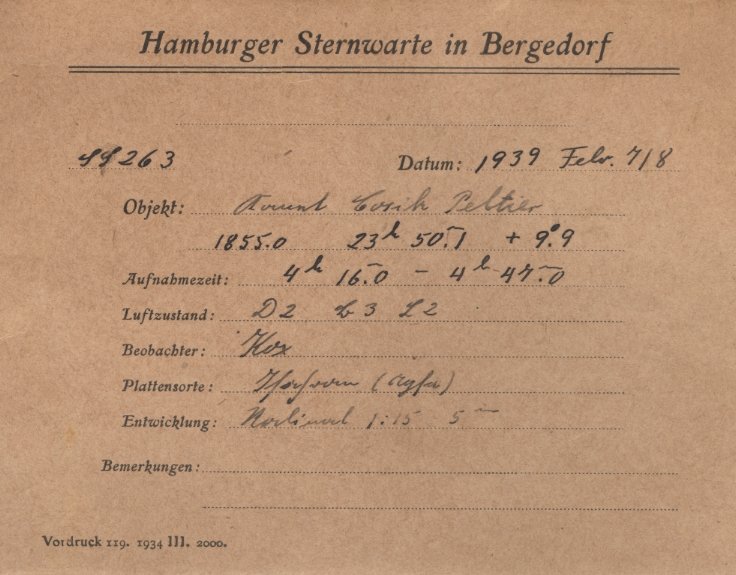 Hamburger Sternwarte in Bergedorf
SS 263 Datum: 1939 Febr. 7/8
Objekt: Komet Cosik Peltier
1855.0 23h 50m.1 + 9°.9
Aufnahmezeit: 4h 16m.0 – 4h 47m.0
Luftzustand: D2 L3 S2
Beobachter: Kox
Plattensorte: (Agfa)
Entwicklung: Rodinal 1:15 5m
Bemerkungen:
Vordruck 119. 1934 III. 2000.